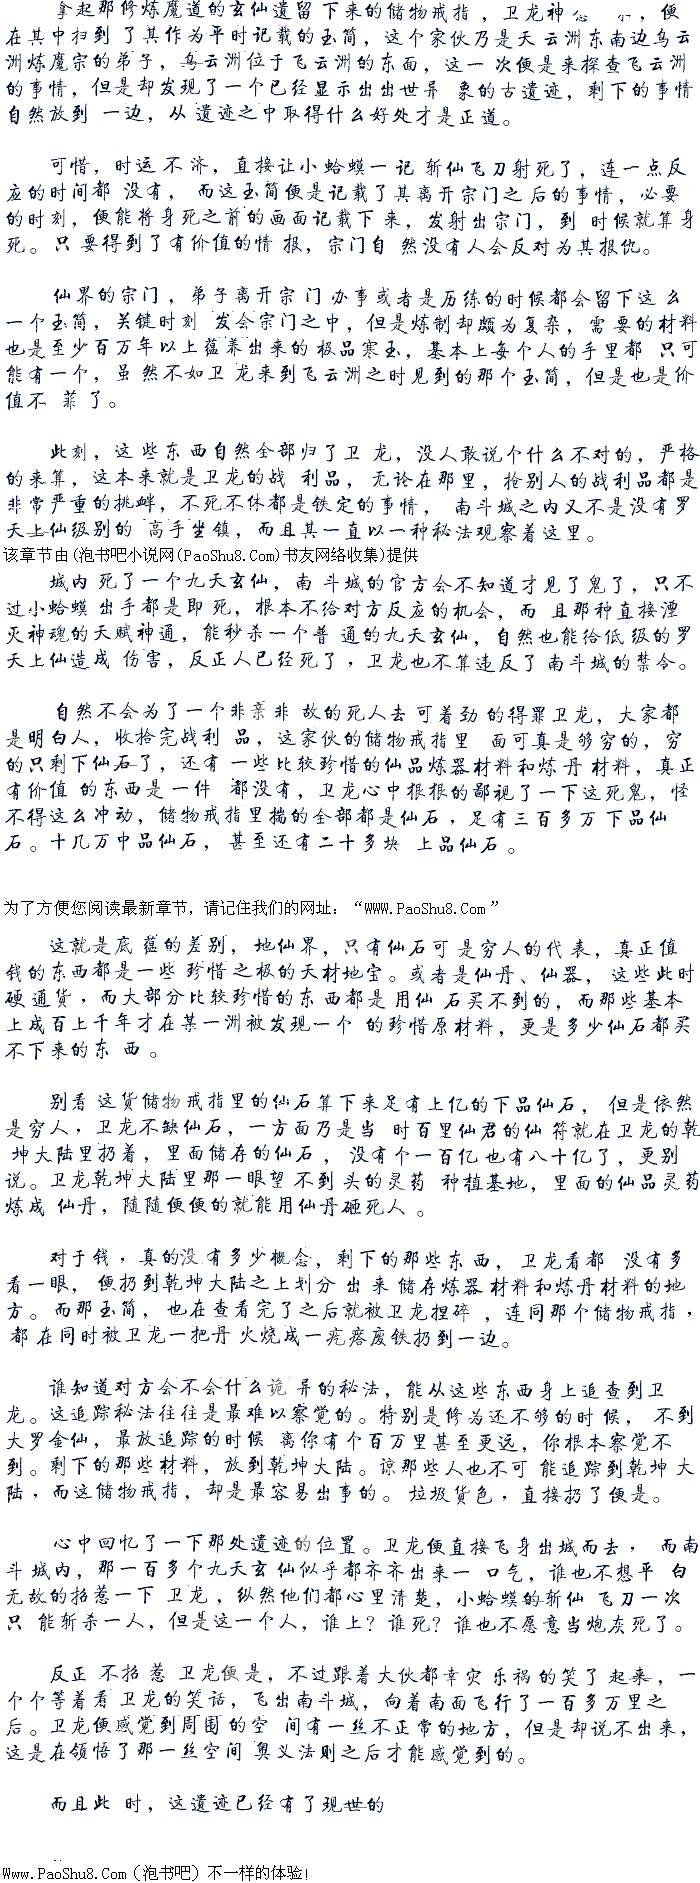 拿起那修炼魔道的玄仙遗留下来的储物戒指，卫龙神 ，便
在其中扫到了其作为平时记载的玉简，这个家伙乃是天云洲东南边乌云
洲炼魔宗的弟子，乌云洲位于飞云洲的东面，这一次便是来探查飞云洲
的事情，但是却发现了一个已经显示出出世异象的古遗迹，剩下的事情
自然放到一边，从遗迹之中取得什么好处才是正道。
可惜，时运不济，直接让小蛤蟆一记斩仙飞刀射死了，连一点反
应的时间都没有，而这玉简便是记载了其离开宗门之后的事情，必要
的时刻，便能将身死之前的画面记载下来，发射出宗门，到时候就算身
死。只要得到了有价值的情报，宗门自然没有人会反对为其报仇。
仙界的宗门，弟子离开宗门办事或者是历练的时候都会留下这么
一个玉简，关键时刻发会宗门之中，但是炼制却颇为复杂，需要的材料
也是至少百万年以上蕴养出来的极品寒玉，基本上每个人的手里都只可
能有一个，虽然不如卫龙来到飞云洲之时见到的那个玉简，但是也是价
值不菲了。
此刻，这些东西自然全部归了卫龙，没人敢说个什么不对的，严格
的来算，这本来就是卫龙的战利品，无论在那里，抢别人的战利品都是
非常严重的挑衅，不死不休都是铁定的事情，南斗城之内又不是没有罗
天上仙级别的高手坐镇，而且其一直以一种秘法观察着这里。
该章节由(泡书吧小说网(PaoShu8.Com)书友网络收集)提供
城内死了一个九天玄仙，南斗城的官方会不知道才见了鬼了，只不
过小蛤蟆出手都是即死，根本不给对方反应的机会，而且那种直接湮
灭神魂的天赋神通，能秒杀一个普通的九天玄仙，自然也能给低级的罗
天上仙造成伤害，反正人已经死了，卫龙也不算违反了南斗城的禁令。
自然不会为了一个非亲非故的死人去可着劲的得罪卫龙，大家都
是明白人，收拾完战利品，这家伙的储物戒指里面可真是够穷的，穷
的只剩下仙石了，还有一些比较珍惜的仙品炼器材料和炼丹材料，真正
有价值的东西是一件都没有，卫龙心中狠狠的鄙视了一下这死鬼，怪
不得这么冲动，储物戒指里揣的全部都是仙石，足有三百多万下品仙
石。十几万中品仙石，甚至还有二十多块上品仙石。
为了方便您阅读最新章节，请记住我们的网址：“WWW.PaoShu8.Com”
这就是底蕴的差别，地仙界，只有仙石可是穷人的代表，真正值
钱的东西都是一些珍惜之极的天材地宝。或者是仙丹、仙器，这些此时
硬通货，而大部分比较珍惜的东西都是用仙石买不到的，而那些基本
上成百上千年才在某一洲被发现一个的珍惜原材料，更是多少仙石都买
不下来的东西。
别看这货储物戒指里的仙石算下来足有上亿的下品仙石，但是依然
是穷人，卫龙不缺仙石，一方面乃是当时百里仙君的仙符就在卫龙的乾
坤大陆里扔着，里面储存的仙石，没有个一百亿也有八十亿了，更别
说。卫龙乾坤大陆里那一眼望不到头的灵药种植基地，里面的仙品灵药
炼成仙丹，随随便便的就能用仙丹砸死人。
对于钱，真的没有多少概念，剩下的那些东西，卫龙看都没有多
看一眼，便扔到乾坤大陆之上划分出来储存炼器材料和炼丹材料的地
方。而那玉简，也在查看完了之后就被卫龙捏碎，连同那个储物戒指，
都在同时被卫龙一把丹火烧成一疙瘩废铁扔到一边。
谁知道对方会不会什么诡异的秘法，能从这些东西身上追查到卫
龙。这追踪秘法往往是最难以察觉的。特别是修为还不够的时候，不到
大罗金仙，最放追踪的时候离你有个百万里甚至更远，你根本察觉不
到。剩下的那些材料，放到乾坤大陆。谅那些人也不可能追踪到乾坤大
陆，而这储物戒指，却是最容易出事的。垃圾货色，直接扔了便是。
心中回忆了一下那处遗迹的位置。卫龙便直接飞身出城而去，而南
斗城内，那一百多个九天玄仙似乎都齐齐出来一口气，谁也不想平白
无故的招惹一下卫龙，纵然他们都心里清楚，小蛤蟆的斩仙飞刀一次
只能斩杀一人，但是这一个人，谁上？谁死？谁也不愿意当炮灰死了。
反正不招惹卫龙便是，不过跟着大伙都幸灾乐祸的笑了起来，一
个个等着看卫龙的笑话，飞出南斗城，向着南面飞行了一百多万里之
后。卫龙便感觉到周围的空间有一丝不正常的地方，但是却说不出来，
这是在领悟了那一丝空间奥义法则之后才能感觉到的。
而且此时，这遗迹已经有了现世的
Www.PaoShu8.Com（泡书吧）不一样的体验!